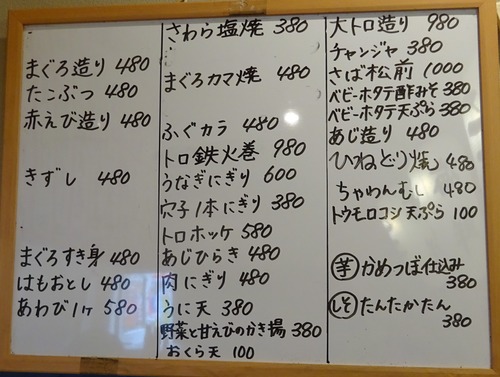 まぐろ造り 480
たこぶつ 480
赤えび造り 480
きずし 480
まぐろすき身 480
はもおとし 480
あわび1ヶ 580
さわら塩焼 380
まぐろカマ焼 480
ふぐカラ 480
トロ鉄火巻 980
うなぎにぎり 600
穴子1本にぎり 380
トロホッケ 580
あじひらき 480
肉にぎり 480
うに天 380
野菜と甘えびのかき揚 380
おくら天 100
大トロ造り 980
チャンジャ 380
さば松前 1000
ベビーホタテ酢みそ 380
ベビーホタテ天ぷら 380
あじ造り 480
ひねどり焼 480
ちゃわんむし 480
トウモロコシ天ぷら 100
芋 かめつぼ仕込み
380
しそ たんたかたん
380